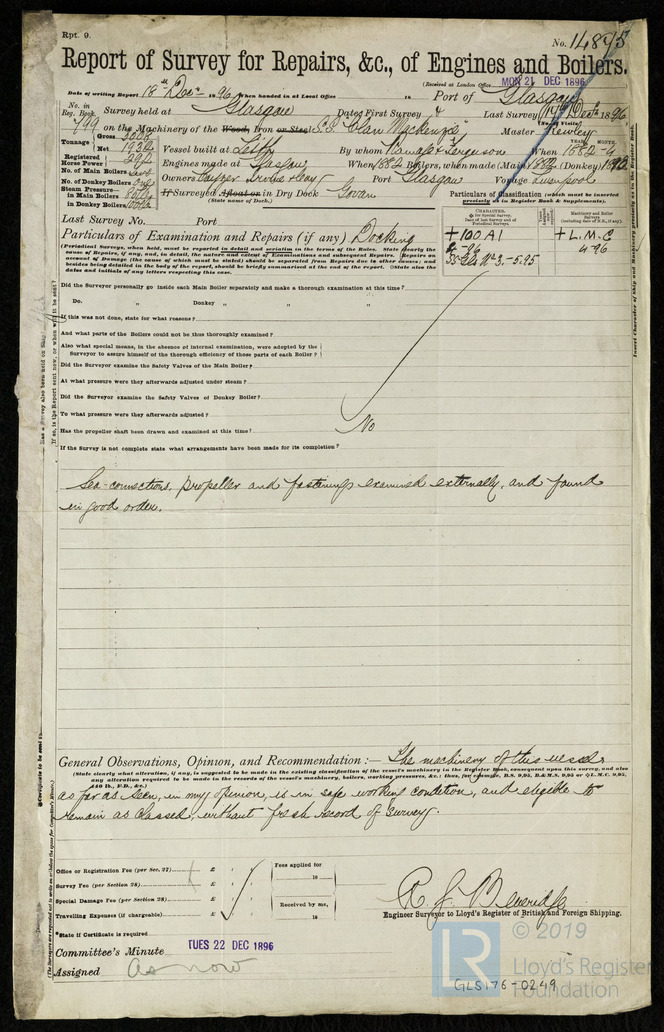 Rpt. 9.
No. 14895
Report of Survey for Repairs, &c., of Engines and Boilers.
(Received at London Office MON 21 DEC 1896
Date of writing Report 18th Decr 1896 When handed in at Local Office 18 Port of Glasgow
No. in Reg. Book. Survey held at Glasgow Date, First Survey Last Survey 17th Decr 1896
799 on the Machinery of the Wood, Iron or Steel S.S. "Clan Mackenzie" Master
Tonnage Gross Net 1932 Vessel built at Leith By whom Ramage & Ferguson When 1882-4
Registered Horse Power Engines made at Glasgow When 1882 Boilers, when made (Main) 1882 (Donkey)
No. of Main Boilers two
No. of Donkey Boilers one Owners Cayzer Irvine & Coy Port Glasgow Voyage Liverpool
Steam Pressure in Main Boilers
in Donkey Boilers
If Surveyed Afloat or in Dry Dock Govan
(State name of Dock.)
Particulars of Classification (which must be inserted precisely as in Register Book & Supplements).
Last Survey No. Port
Particulars of Examination and Repairs (if any) Docking
CHARACTER.
Machinery and Boiler Surveys
+100A1
+L.M.C
4-96
SS Gls No 3.-5.95
(Periodical Surveys, when held, must be reported in detail and seriatim in the terms of the Rules. State clearly the
cause of Repairs, if any, and, in detail, the nature and extent of Examinations and subsequent Repairs. Repairs on
account of Damage (the cause of which must be stated) should be separated from Repairs due to other causes; and
besides being detailed in the body of the report, should be briefly summarised at the end of the report. (State also the
dates and initials of any letters respecting this case.
Did the Surveyor personally go inside each Main Boiler separately and make a thorough examination at this time?
Do. " Donkey " " "
If this was not done, state for what reasons?
And what parts of the Boilers could not be thus thoroughly examined?
Also what special means, in the absence of internal examination, were adopted by the
Surveyor to assure himself of the thorough efficiency of those parts of each Boiler?
Did the Surveyor examine the Safety Valves of the Main Boiler?
At what pressure were they afterwards adjusted under steam?
Did the Surveyor examine the Safety Valves of Donkey Boiler?
To what pressure were they afterwards adjusted?
Has the propeller shaft been drawn and examined at this time? No
If the Survey is not complete state what arrangements have been made for its completion?
Sea-connections, propeller and fastenings examined externally, and found
in good order.
General Observations, Opinion, and Recommendation :— The machinery of this vessel,
(State clearly what alteration, if any, is suggested to be made in the existing classification of the vessel's machinery in the Register Book, consequent upon this survey, and also
any alteration required to be made in the records of the vessel's machinery, boilers, working pressures, &c.: thus, for example, B.S. 9,95, B.&M.S. 9,95 or L.M.C. 9,95,
140 lb., F.D., &c.)
as far as seen, in my opinion, is in safe working condition, and eligible to
remain as Classed, without fresh record of Survey.
Office or Registration Fee (per Sec. 27) £ Fees applied for
Survey Fee (per Section 28) £ 18
Special Damage Fee (per Section 28) £ Received by me,
Travelling Expenses (if chargeable) £ 18
R. J. Beveridge
Engineer Surveyor to Lloyd's Register of British and Foreign Shipping.
*State if Certificate is required
Committee's Minute TUES 22 DEC 1896
Assigned As now
LR
© 2019
Lloyd's Register
Foundation
GLS176-0249